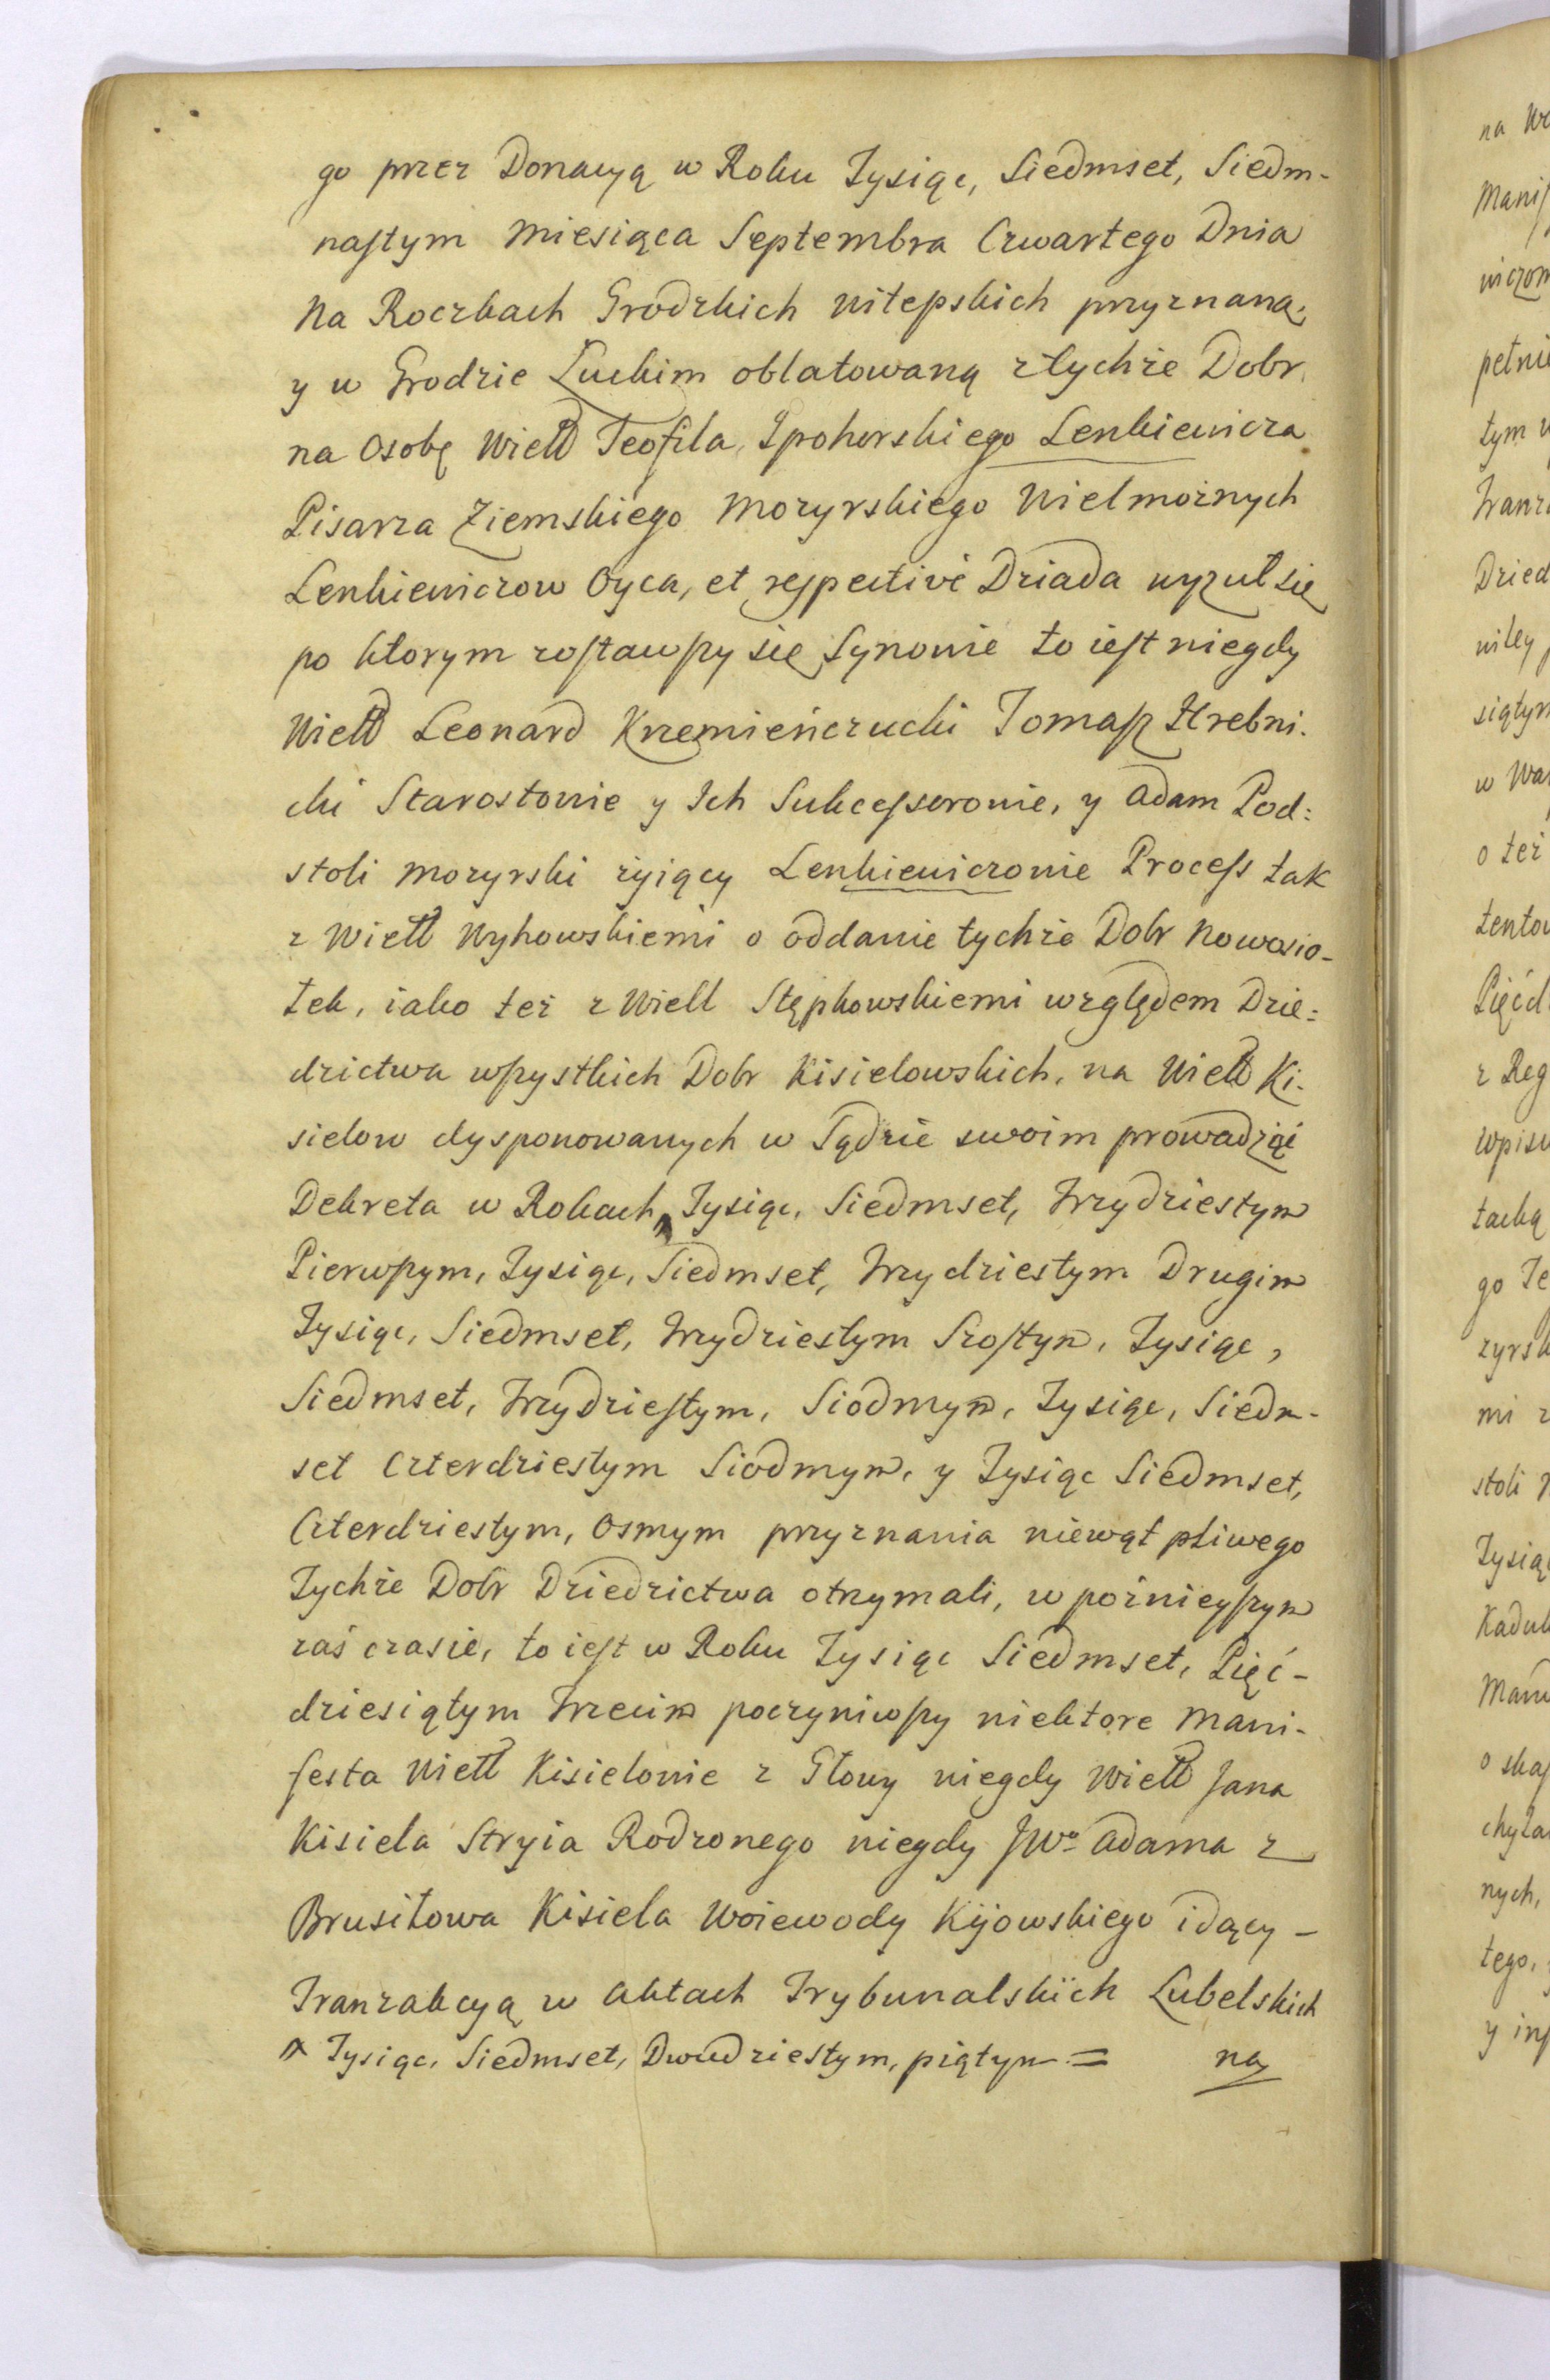 go przez Donacyą w Roku Tysiąc, Siedmset, Siedm-
nastym Miesiąca Septembra Czwartego Dnia
Na Roczkach Grodzkich Witepskich przyznaną,
y w Grodzie Łuckim oblatowaną z tychże Dobr
na Osobę Wiell Teofila, Ipohorskiego Lenkiewicza
Pisarza Ziemskiego Mozyrskiego Wielmożnych
Lenkiewiczow Oyca, et respectivè Dziada wyzuł się
po ktorym zostawszy się Synowie to iest niegdy
Wiell Leonard Krzemieńczucki Tomasz Hrebni.
cki Starostowie y Ich Sukcessorowie, y Adam Pod:
stoli Mozyrski żyiący Lenkiewiczowie Process tak
z Wiell Wyhowskiemi o oddanie tychże Dobr Nowosio-
łek, iako też z Wiell Stępkowskiemi względem Dzie:
dzictwa wszystkich Dobr Kisielowskich, na Wiell Ki-
sielow dysponowanych w Sądzie swoim prowadząć
Dekreta w Rokach ^ Tysiąc, Siedmset, Trzydziestym
Pierwszym, Tysiąc, Siedmset, Trzydziestym Drugim
Tysiąc, Siedmset, Trzydziestym Szostym, Tysiąc,
Siedmset, Trzydziestym, Siodmym, Tysiąc, Siedm-
set Czterdziestym Siodmym, y Tysiąc Siedmset,
Czterdziestym, Osmym przyznania niewątpliwego
Tychże Dobr Dziedzictwa otrzymali, w poźnieyszym
zaś czasie, to iest w Roku Tysiąc Siedmset, Pięć-
dziesiątym Trzecim poczyniwszy niektore Mani-
festa Wiell Kisielowie z Głowy niegdy Wiell Jana
Kisiela Stryia Rodzonego niegdy JWo Adama z
Brusiłowa Kisiela Woiewody Kijowskiego idący –
Tranzakcyą w Aktach Trybunalskich Lubelskich
^ Tysiąc, Siedmset, Dwudziestym, piątym =
na
na
Mani
wiczom
pełnie
tym
Tranz
Dzied
wiley
siątym
w
o też
tento
Pięćd
z Reg
wpis
taką
go Te
zyrsk
mi z
stoli
Tysią
Kaduk
Mani
o
chyla
nych,
tego,
y